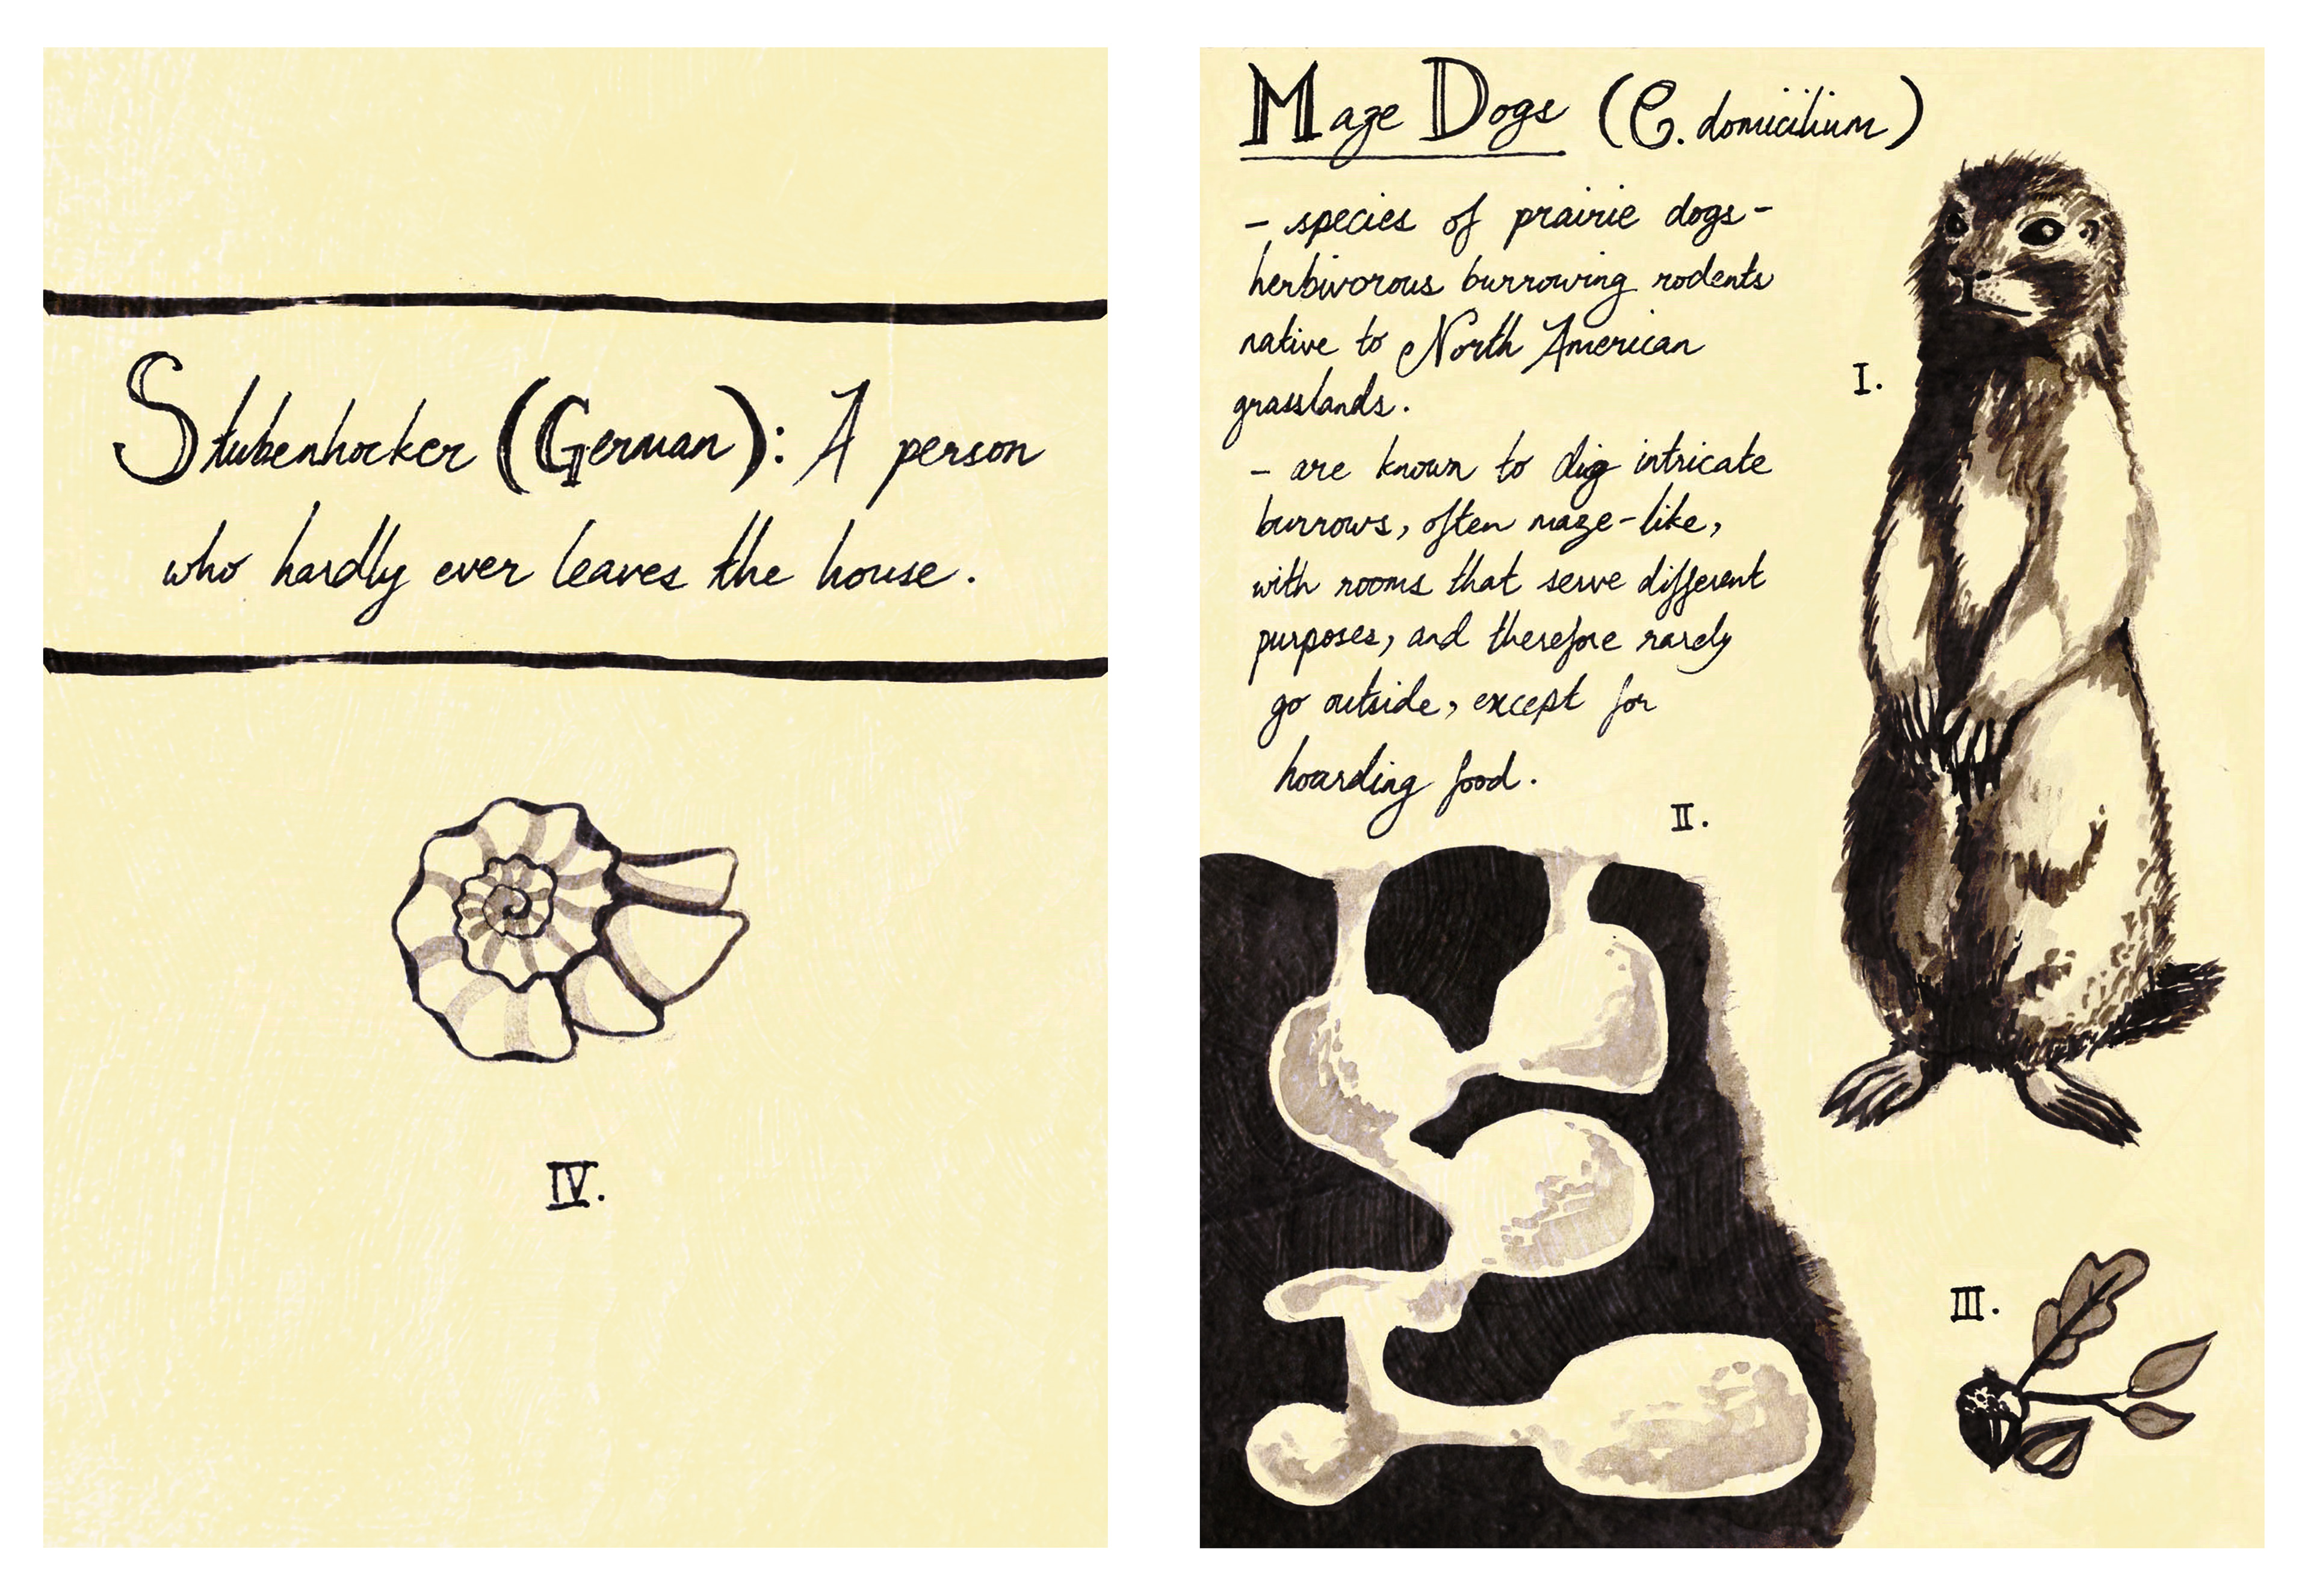 Stubenhocker (German): A person
who hardly ever leaves the house.
IV.
Maze Dogs (C. domicilium)
- species of prairie dogs -
herbivorous burrowing rodents
native to North American
grasslands.
- are known to dig intricate
burrows, often maze-like,
with rooms that serve different
purposes, and therefore rarely
go outside, except for
hoarding food.
I.
II.
III.